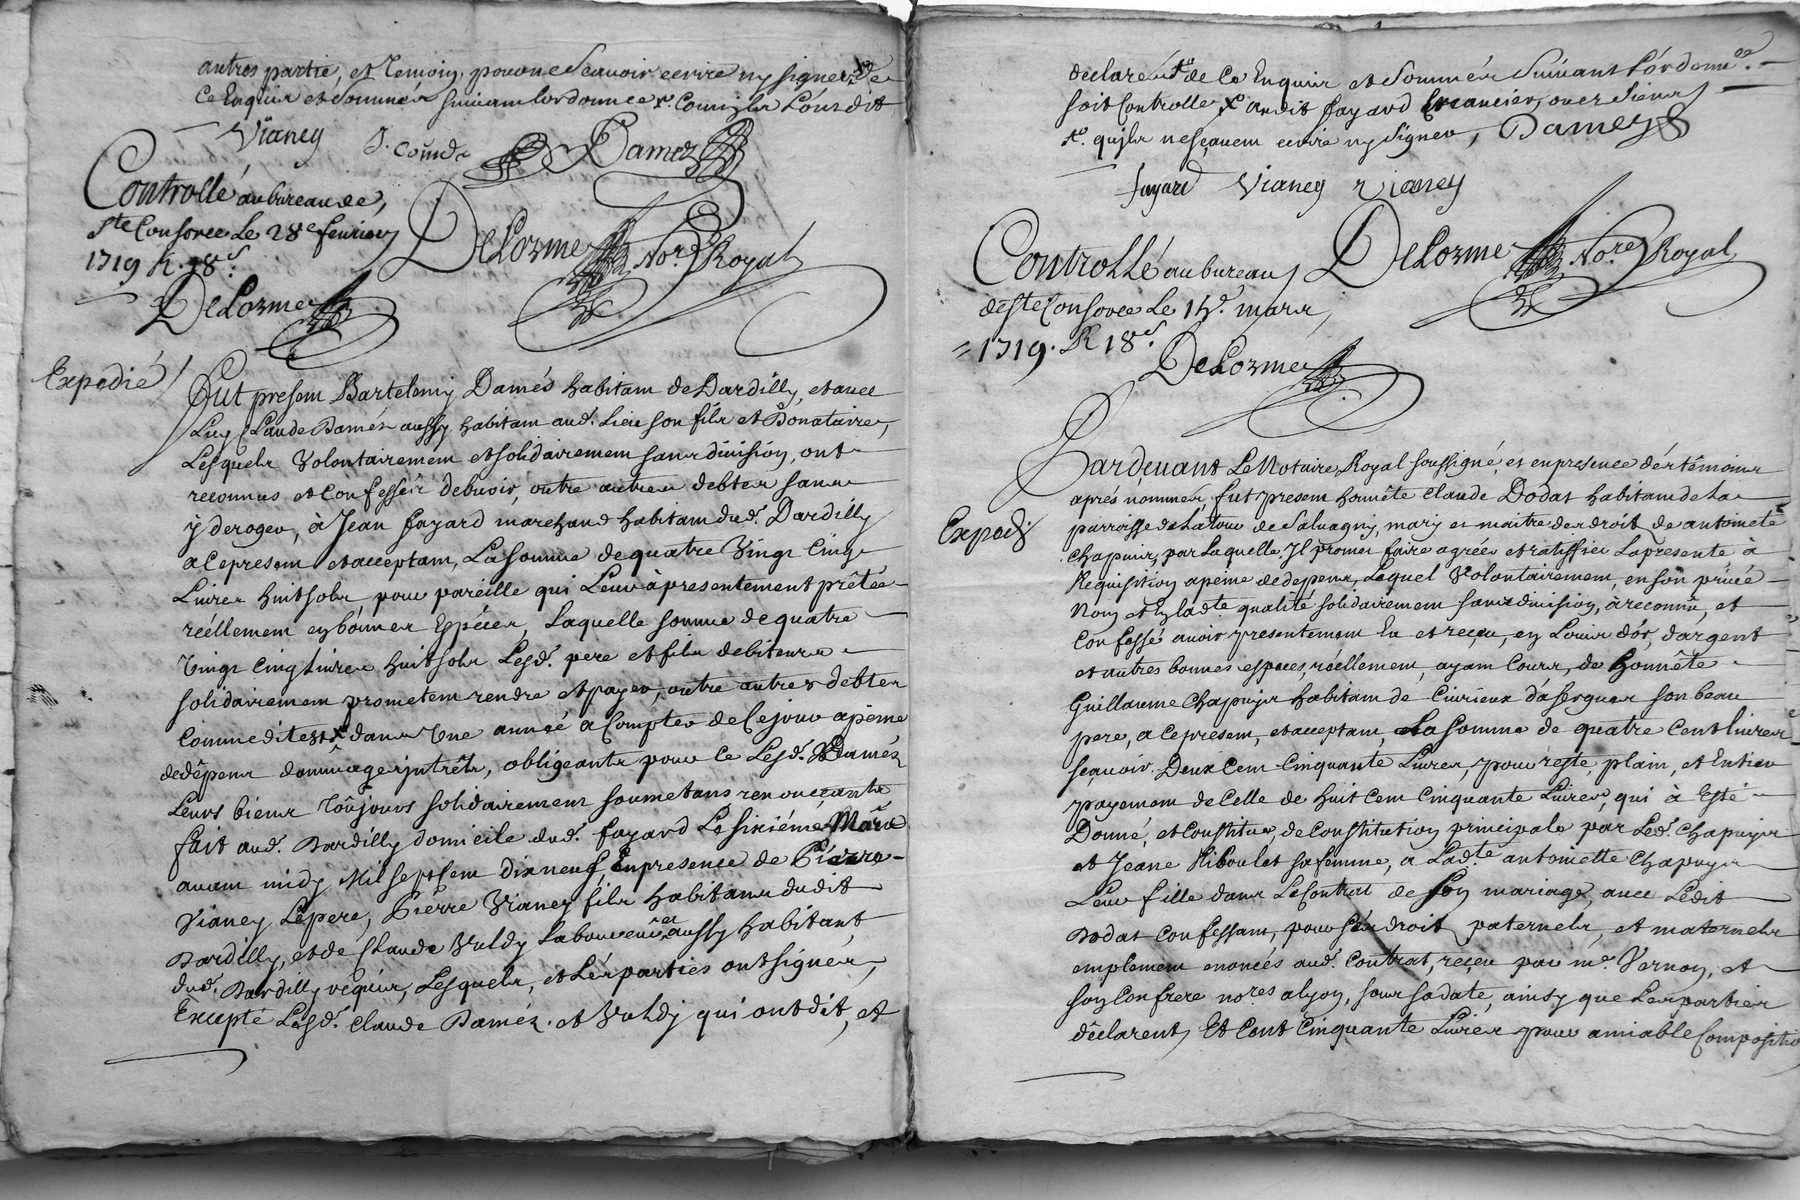 autres partie, et temoin, pour ne scavoir ecrire ny signer, de
ce Enquis et sommés suivant lordonnce
Vianey
Damez
Controllé au bureau de,
Ste Consorce Le 28e fevrier
1719 R. 18s.
DeLorme Nore Royal
DeLorme
Expedié
Fut present Bartelemy Damés habitant de Dardilly, et avec
Luy Claude Damés aussy habitant aud. Lieu son fils et Donataire,
Lesquels Volontairement et solidairement sans division, ont
reconnus et confessér debvoir, outre autres debtes sans
ÿ deroger, à Jean fayard marchand habitant dud. Dardilly
a Ce present et acceptant, La somme de quatre Vingt Cinq
Livres huit sols pour pareille qui Leur à presentement prêtée
réellement en bonnes Espéces, Laquelle somme de quatre
Vingt Cinq Livres huit sols Lesd. pere et fils debiteurs
solidairement prometent rendre et payer, outre autres debtes
Comme dit est dans Une année a Compter de Ce jour apeine
de dêpens dommages intrêts, obligeants pour Ce Lesd. Damés
Leurs biens Toûjours solidairement soumetans renonceants
fait aud. Dardilly domicile dud. fayard Le sixiéme Mars
avant midy Mil sept cent dixneuf, En presence de Pierre
Vianey Le pere, Pierre Vianey fils habitans dudit
Dardilly, et de Claude Vuldy Laboureur aussy habitant
dud. Dardilly requis, Lesquels, et Les parties ont signér,
Excepté Lesd. Claude Damés. et Vuldy qui ont dit, et
declaré de Ce Enquis et sommés suivant L'ordonnce.
soit Controllé audit fayard Creancier,
quils ne sçavent ecrire ny signer, Damez
fayard Vianey vianey
Controllé au bureau
de Ste Consorce Le mars
1719. R 18s.
DeLorme Nore Royal
DeLorme
Pardevant Le Notaire Royal soussigné, et en presence des têmoins
aprés nommés, fut present honnête Claude Dodat habitant de La
Expedié
parroisse de Latour de Salvagny, mary et maitre des droits de antoinete
Chapuis, par Laquelle Il promet faire agréer et ratiffier La presente à
Requisition apeine de depens, Lequel Volontairement, en son privée
Nom et En ladte qualité solidairement sans division, à reconnu, et
Confessé avoir presentement Eu et reçeu, en Louis d'ôr, d'argent
et autres bonnes espeçes, réellement, ayant Cours, de honnête
Guillaume Chapuys habitant de Civrieux d'aserguer son beau
pere, a Ce present, et acceptant, La somme de quatre Cent livres
sçavoir. Deux Cent Cinquante Livres, pour reste, plain, et Entier
payement de Celle de huit Cent Cinquante Livres, qui à Esté
Donné, et Constitué de Constitution principale par Led. Chapuys
et Jeane Riboulet sa femme, a Ladte antoinette Chapuys
Leur fille dans Le Contrat de son mariage, avec Ledit
Dodat Confessant, pour ses droits paternels, et maternels
emplement enoncés aud. Contrat, reçeu par me. Vernon, et
son Confrere nores a lyon, sous sa date, ainsy que Les parties
déclarent, Et Cent Cinquante Livres pour amiable Compositio